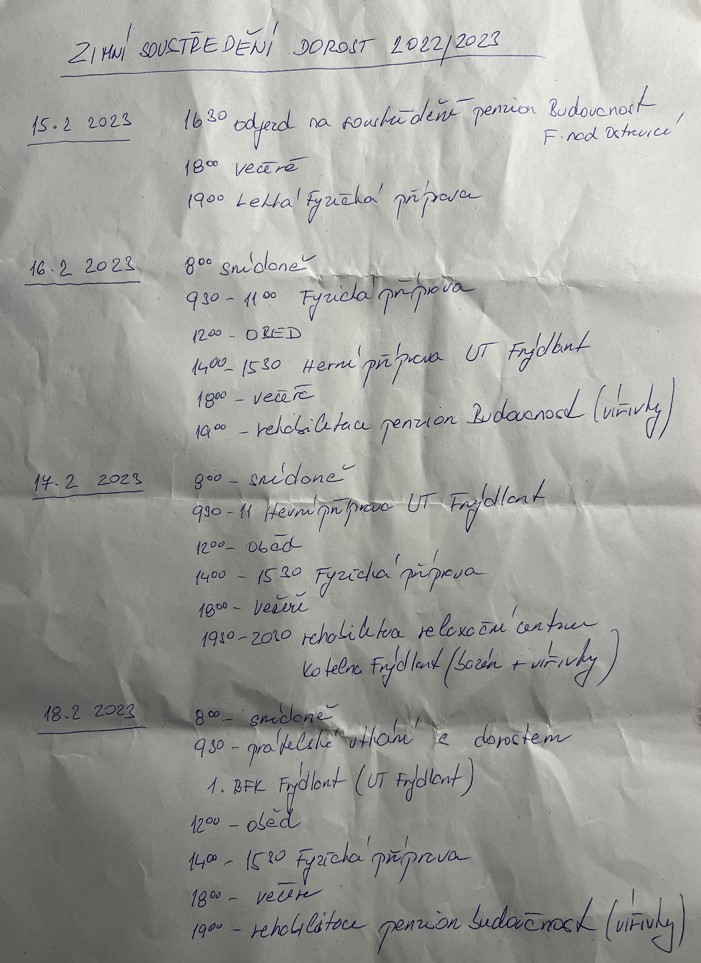 ZIMNÍ SOUSTŘEDĚNÍ DOROST 2022/2023
15.2 2023 16³⁰ odjezd na soustředění penzion Budoucnost
F. nad Ostravicí
18⁰⁰ večeře
19⁰⁰ Lehká Fyzická příprava
16.2 2023 8⁰⁰ snídaně
9³⁰ - 11⁰⁰ Fyzická příprava
12⁰⁰ - OBED
14⁰⁰ - 15³⁰ Herní příprava UT Frýdlant
18⁰⁰ - večeře
19⁰⁰ - rehabilitace penzion Budoucnost (vířivky)
17.2 2023 8⁰⁰ - snídaně
9³⁰ - 11 Herní příprava UT Frýdlant
12⁰⁰ - oběd
14⁰⁰ - 15³⁰ Fyzická příprava
18⁰⁰ - večeře
19³⁰ - 20³⁰ rehabilitace relaxační centrum
Kotelna Frýdlant (bazén + vířivky)
18.2 2023 8⁰⁰ - snídaně
9³⁰ - přátelské utkání s dorostem
1. BFK Frýdlant (UT Frýdlant)
12⁰⁰ - oběd
14⁰⁰ - 15³⁰ Fyzická příprava
18⁰⁰ - večeře
19⁰⁰ - rehabilitace penzion budoučnost (vířivky)